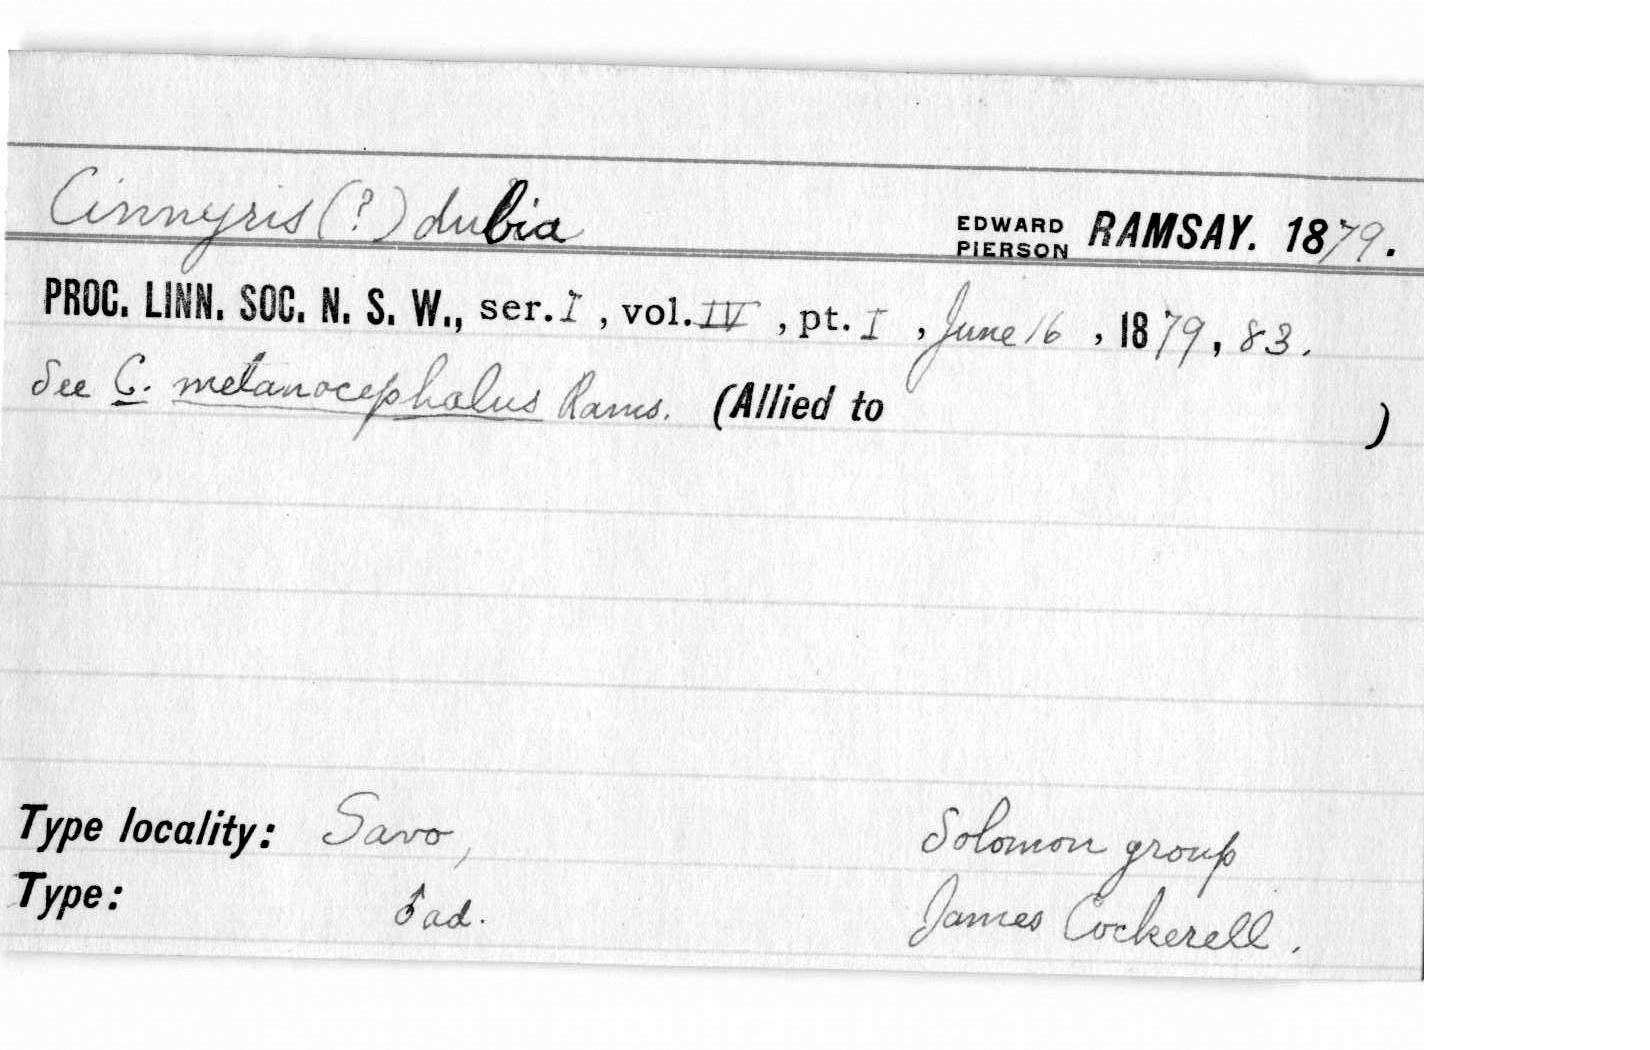 Cinnyris (?) dubia EDWARD PIERSON RAMSAY. 1879.
PROC. LINN. SOC. N. S. W., ser. I, vol. IV, pt. I, June 16, 1879, 83.
See C. melanocephalus Rams. (Allied to )
Type locality: Savo, Solomon group
Type: ♂ ad. James Cockerell.